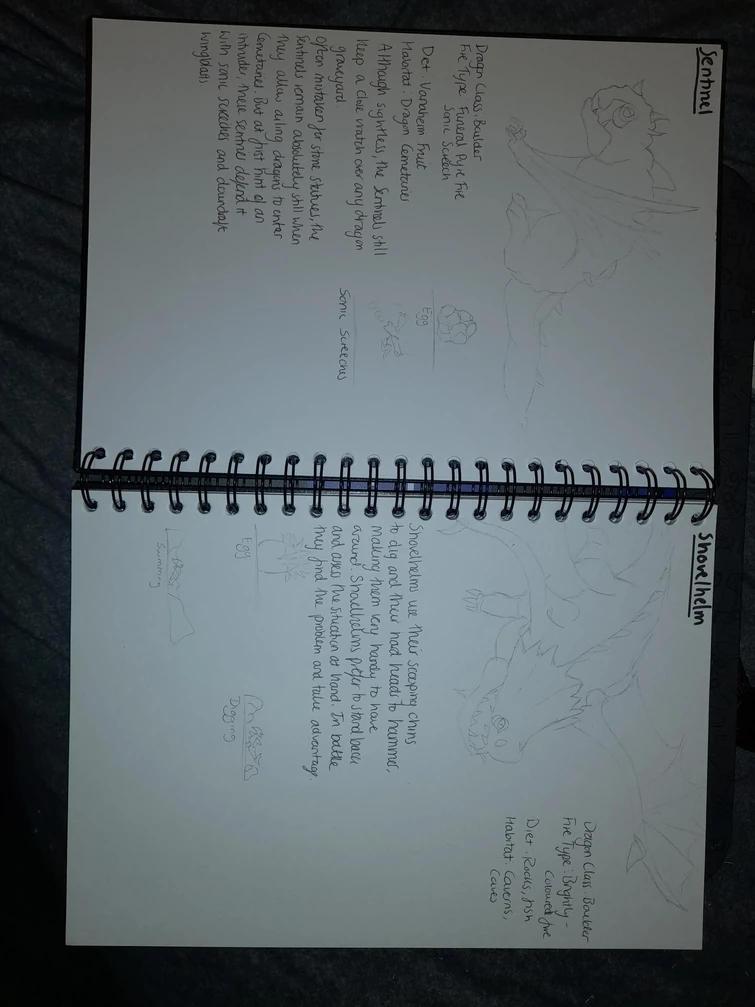 Sentinel
Dragn Class: Boulder
Fire Type: Funeral Pyre Fire
Sonic Screech
Diet: Vanaheim Fruit
Habitat: Dragon Cemetaries
Although sightless, the Sentinels still
keep a close watch over any dragon
graveyard
Often mistaken for stone statues, the
Sentinels remain absolutely still when
they allow ailing dragons to enter
Cemetaries. But at first hint of an
intruder, these sentries defend it
with sonic screeches and downdraft
wingblasts
Egg
Sonic Screeches
Shovelhelm
Dragon Class: Boulder
Fire Type: Brightly-
Coloured fire
Diet: Rocks, fish
Habitat: Caverns,
Caves
Shovelhelms use their scooping chins
to dig and their hard heads to hammer,
making them very handy to have
around. Shovelhelms prefer to stand back
and asess the situation at hand. In battle
they find the problem and take advantage.
Egg
Digging
Swimming